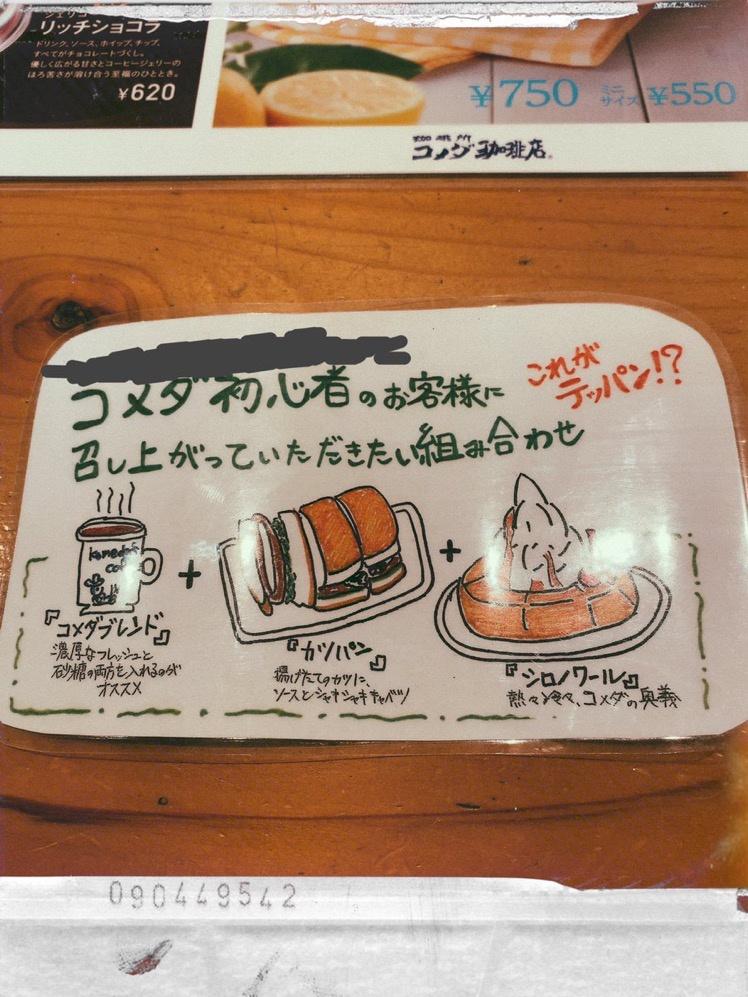 ジェリコ
リッチショコラ
ドリンク、ソース、ホイップ、チップ、
すべてがチョコレートづくし。
優しく広がる甘さとコーヒージェリーの
ほろ苦さが溶け合う至福のひととき。
¥620
¥750 ミニサイズ ¥550
珈琲所
コメダ珈琲店
コメダ初心者のお客様に
これが
テッパン!?
召し上がっていただきたい組み合わせ
komeda's
+
+
『コメダブレンド』
濃厚なフレッシュと
砂糖の両方を入れるのが
オススメ
『カツパン』
揚げたてのカツに、
ソースとシャキシャキキャベツ
『シロノワール』
熱々冷々、コメダの奥義
090449542